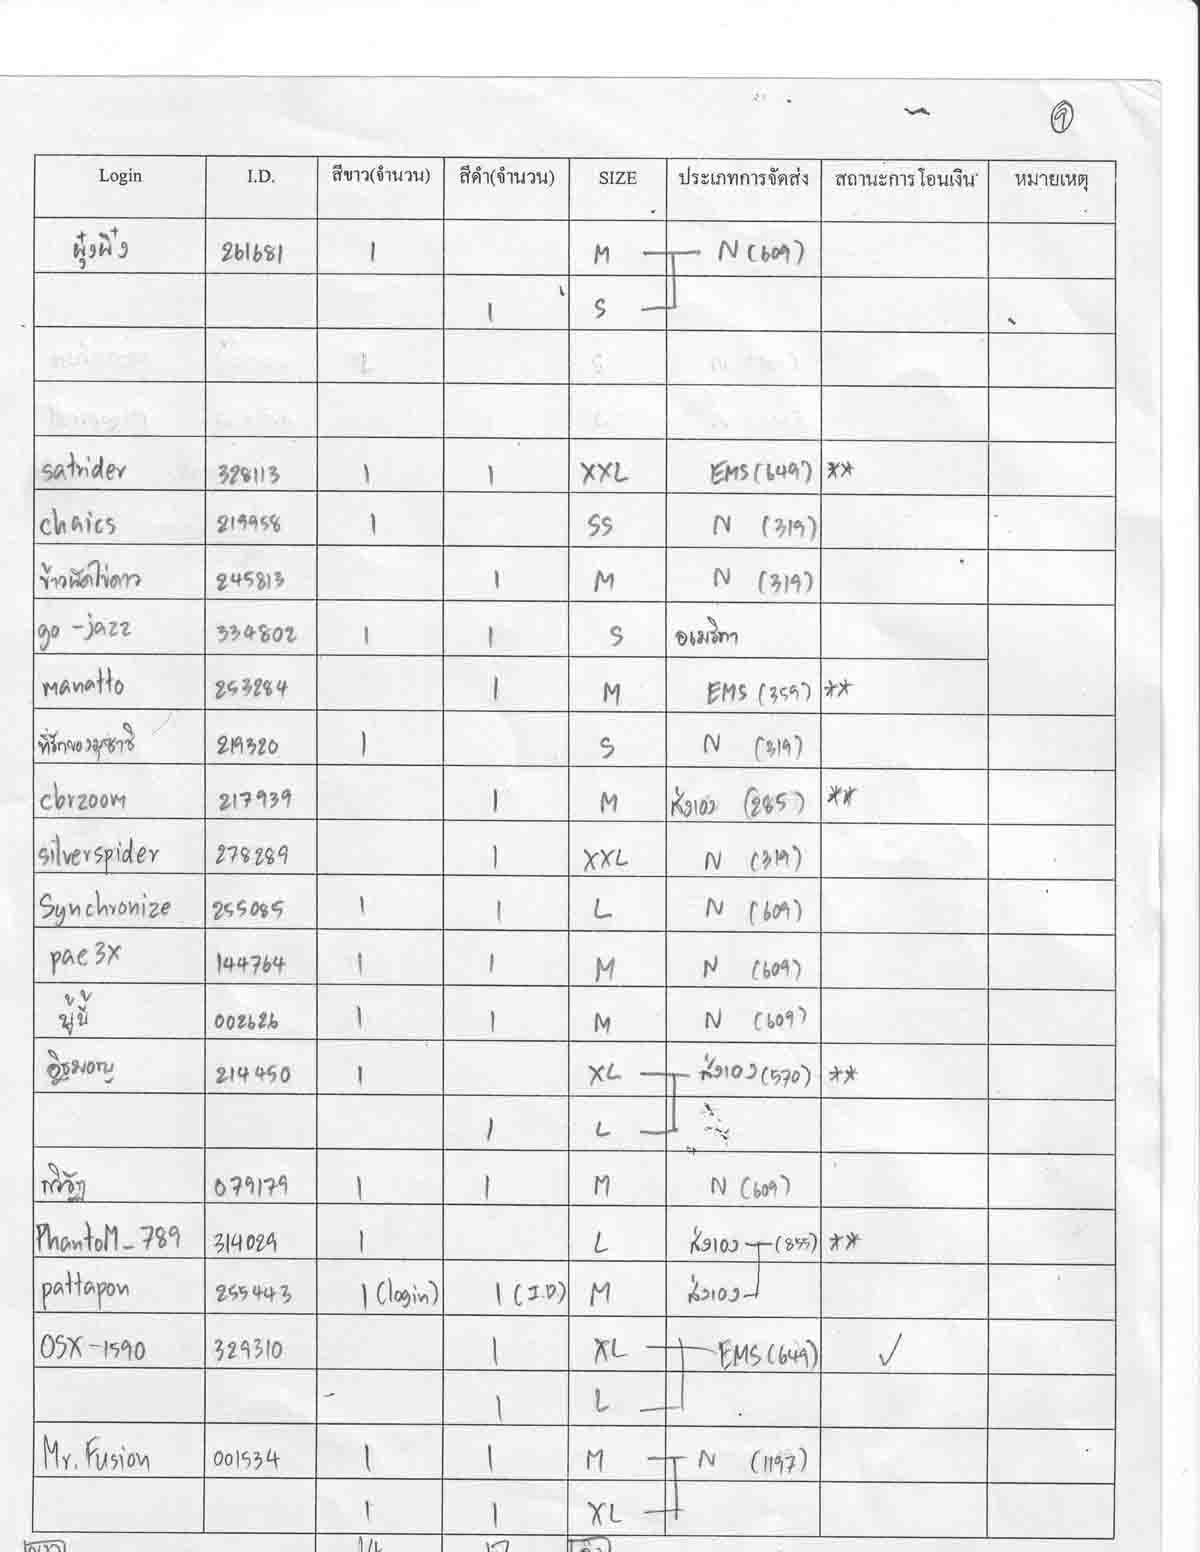 ๑
Login I.D. สีขาว(จำนวน) สีดำ(จำนวน) SIZE ประเภทการจัดส่ง สถานะการโอนเงิน หมายเหตุ
ผุ๋งผิ๋ง 261681 1 M N (609)
1 S
satrider 328113 1 1 XXL EMS (649) **
chaics 219958 1 SS N (319)
ข้าวผัดไข่ดาว 245813 1 M N (319)
go-jazz 334802 1 1 S อเมริกา
manatto 253284 1 M EMS (359) **
219320 1 S N (319)
cbrzoom 217939 1 M สั่งเอง (285) **
silverspider 278289 1 XXL N (319)
Synchronize 255085 1 1 L N (609)
pae3X 144764 1 1 M N (609)
002626 1 1 M N (609)
214450 1 XL สั่งเอง (570) **
1 L
079179 1 1 M N (609)
PhantoM_789 314029 1 L สั่งเอง (855) **
pattapon 255443 1 (login) 1 (I.D) M สั่งเอง
OSX-1590 329310 1 XL EMS (649) ✓
1 L
Mr. Fusion 001534 1 1 M N (1197)
1 1 XL